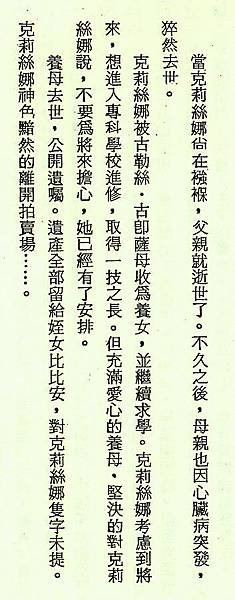 當克莉絲娜尙在襁褓，父親就逝世了。不久之後，母親也因心臟病突發，
猝然去世。
克莉絲娜被古勒絲·古即薩母收爲養女，並繼續求學。克莉絲娜考慮到將
來，想進入專科學校進修，取得一技之長。但充滿愛心的養母，堅決的對克莉
絲娜說，不要爲將來擔心，她已經有了安排。
養母去世，公開遺囑。遺產全部留給姪女比比安，對克莉絲娜隻字未提。
克莉絲娜神色黯然的離開拍賣場……。